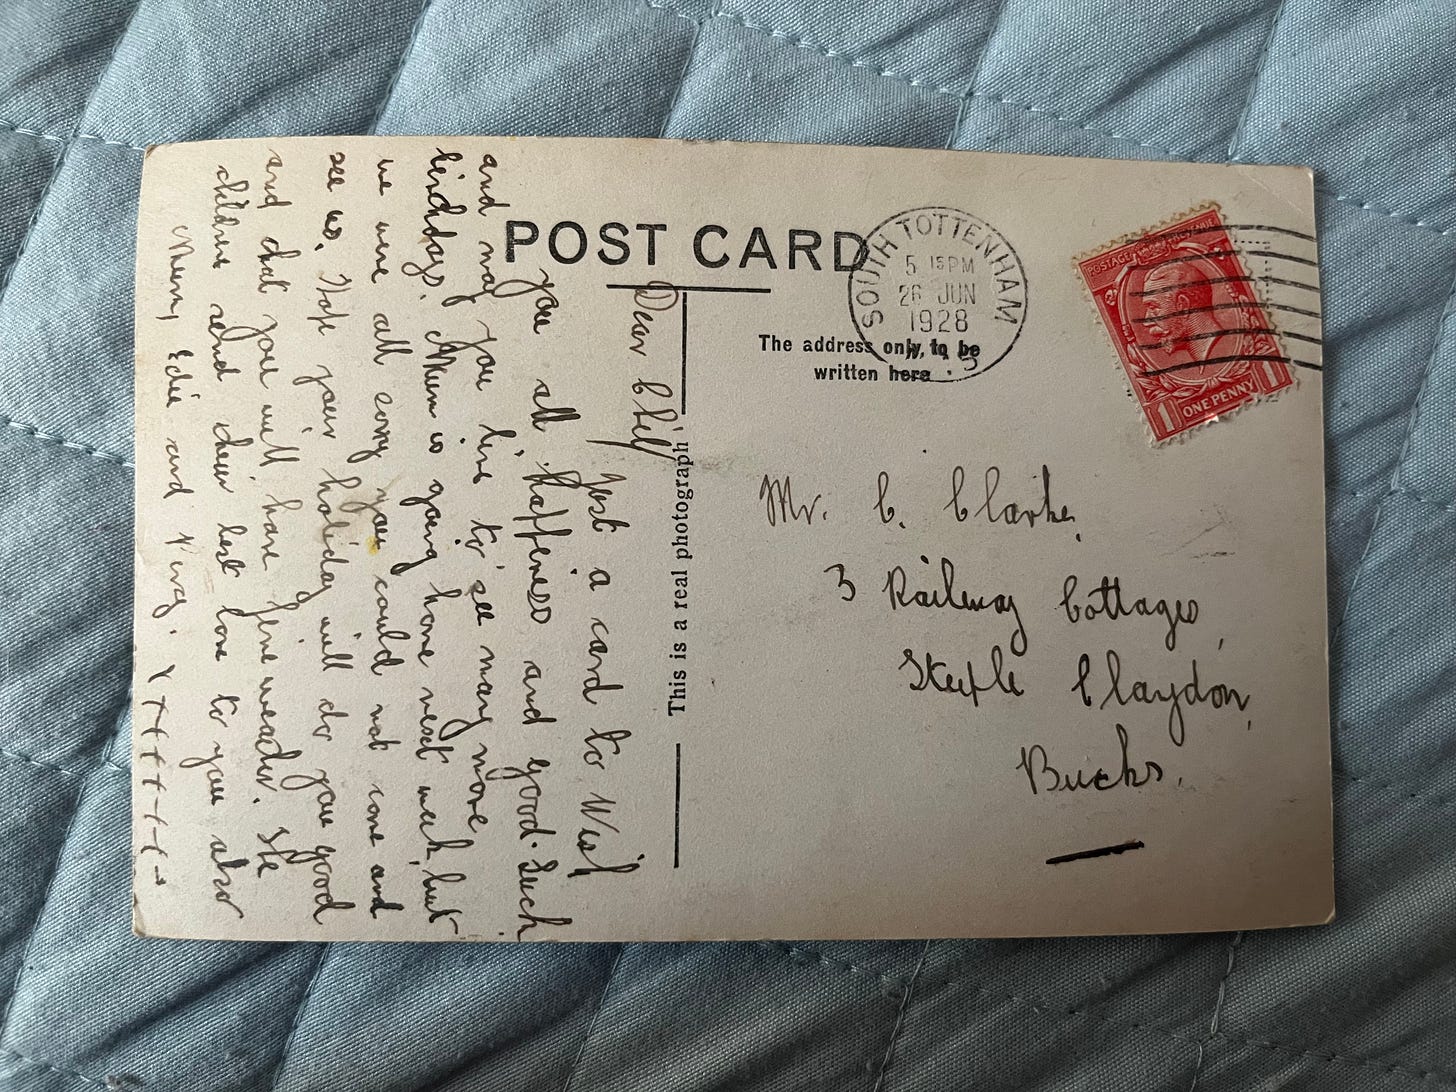 POST CARD
SOUTH TOTTENHAM
5 15 PM
26 JUN
1928
N.15
POSTAGE REVENUE
1 ONE PENNY 1
The address only, to be
written here
This is a real photograph
Mr. C. Clarke,
3 Railway Cottages,
Steeple Claydon,
Bucks.
Dear Cliff
Just a card to Wish
you all happiness and good. Luck
and may you live to see many more
birthdays. Mum is going home next week, but
we were all sorry you could not come and
see us. Hope your holiday will do you good
and that you will have fine weather. The
children send their best love to you also
Mum, Edie and Perg. X X X X X X X X